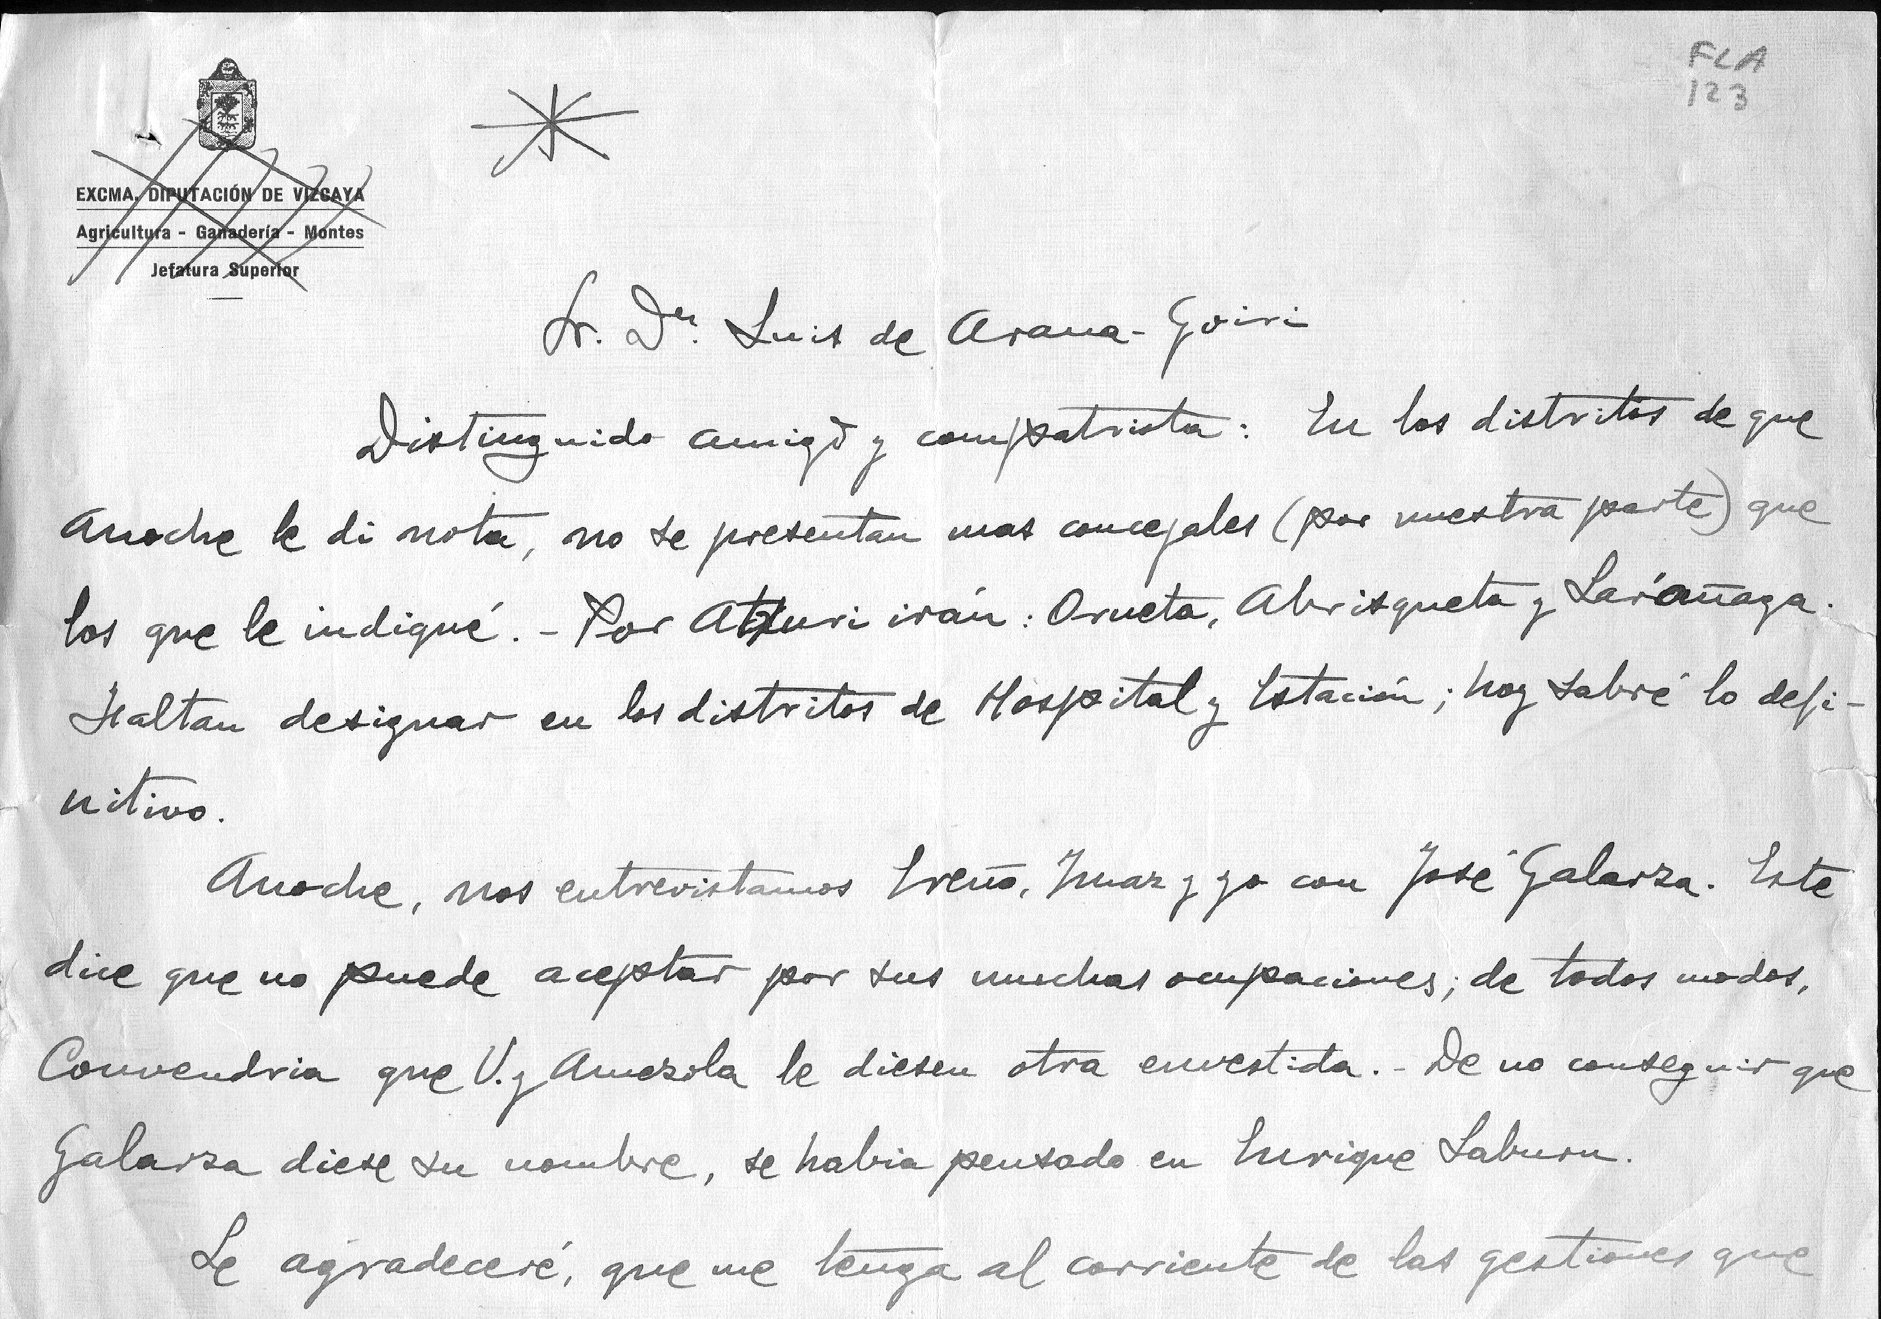 FLA
123
EXCMA. DIPUTACIÓN DE VIZCAYA
Agricultura - Ganadería - Montes
Jefatura Superior
Sr. Dn. Luis de Arana-Goiri
Distinguido amigo y compatriota: En los distritos de que
anoche le di nota, no se presentan mas concejales (por nuestra parte) que
los que le indiqué. - Por Atxuri irán: Orueta, Abrisqueta y Larrañaga.
Faltan designar en los distritos de Hospital y Estación; hoy sabré lo defi-
nitivo.
Anoche, nos entrevistamos Ereño, Imaz y yo con José Galarza. Este
dice que no puede aceptar por sus muchas ocupaciones; de todos modos,
Convendria que V. y Amezola le diesen otra envestida. - De no conseguir que
Galarza diese su nombre, se habia pensado en Enrique Laburu.
Le agradeceré, que me tenga al corriente de las gestiones que